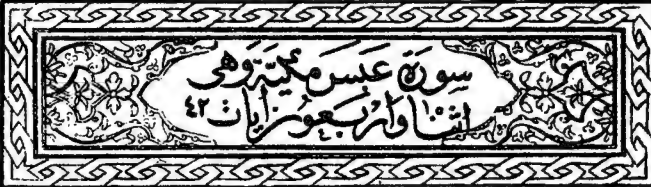 سورة عبس مكية وهى
اثنتا واربعون آيات ٤٢